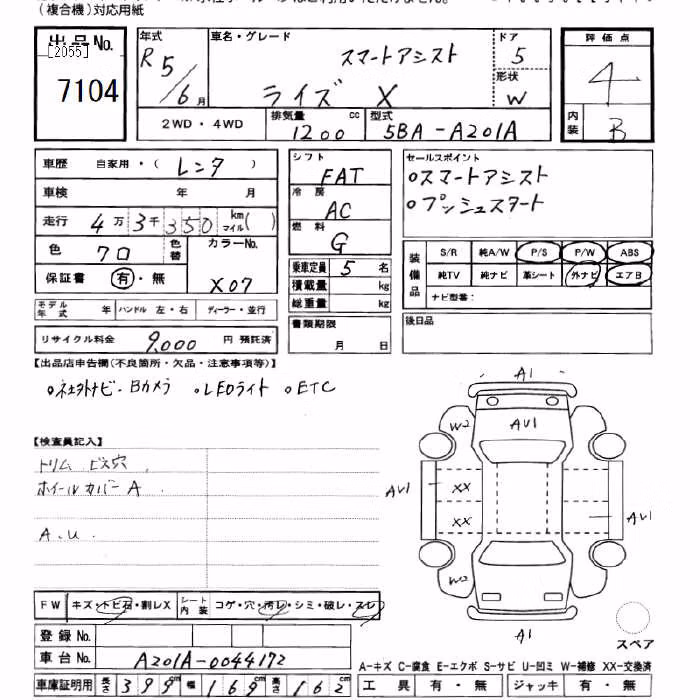 (複合機)対応用紙
出品No.
[2055]
7104
年式
R5/6月
車名・グレード
スマートアシスト
ライズ X
ドア
5
形状
W
評価点
4
内装
B
2WD・4WD
排気量 cc
1200
型式
5BA-A201A
車歴 自家用・(レンタ)
車検 年 月
走行 4万3千350 km マイル( )
色 クロ 色替
カラーNo.
X07
保証書 有・無
モデル年式 年 ハンドル 左・右 ディーラー・並行
リサイクル料金 9,000 円 預託済
シフト
FAT
冷房
AC
燃料
G
乗車定員 5 名
積載量 kg
総重量 kg
書類期限
月 日
セールスポイント
○スマートアシスト
○プッシュスタート
装備品
S/R 純A/W P/S P/W ABS
純TV 純ナビ 革シート 外ナビ エアB
ナビ型番:
後日品
【出品店申告欄(不良箇所・欠品・注意事項等)】
○社外ナビ・Bカメラ ○LEDライト ○ETC
【検査員記入】
トリム ビス穴
ホイールカバーA
A.U
A1
W2
AU1
AU1
XX
XX
AU1
A1
スペア
FW キズ・トビ石・割レX シート内装 コゲ・穴・汚レ・シミ・破レ・スレ
登録No.
車台No. A201A-0044172
車庫証明用 長さ 399cm 幅 169cm 高さ 162cm
A-キズ C-腐食 E-エクボ S-サビ U-凹ミ W-補修 XX-交換済
工具 有・無 ジャッキ 有・無